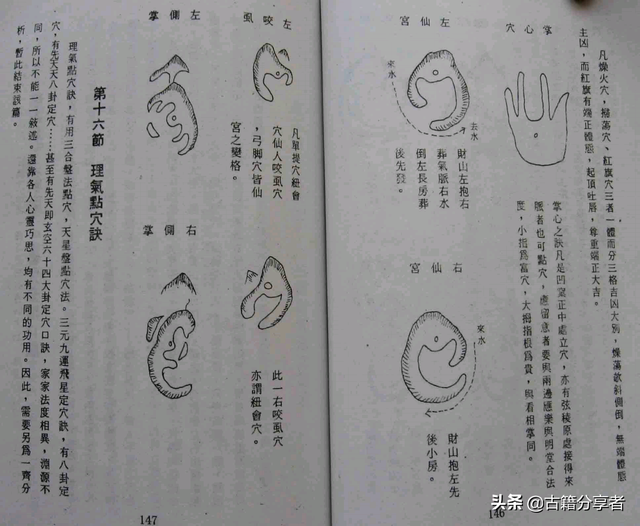 凡燥火穴，掃蕩穴、紅旗穴三者一體而分三格吉凶大別，燥蕩欹斜側倒，無端體態
主凶，而紅旗有端正體態，起頂吐唇，尊重端正大吉。
掌心穴
掌心之訣凡是凹窩正中處立穴，亦有弦稜原處接得來
脈者也可點穴，應留意者要與兩邊應樂與明堂合法
度，小指為富穴，大拇指根為貴，與看相掌同。
左仙宮
來水
去水
財山左抱右
葬氣脈右水
倒左長房葬
後先發。
右仙宮
來水
財山抱左先
後小房。
146
左咬虱
凡單提穴紐會
穴仙人咬虱穴
，弓脚穴皆仙
宮之變格。
此一右咬虱穴
亦謂紐會穴。
左側掌
右側掌
第十六節　理氣點穴訣
理氣點穴訣，有用三合盤法點穴，天星盤點穴法。三元九運飛星定穴訣，有八卦定
穴，有先天八卦定穴……甚至有先天即玄空六十四大卦定穴口訣，家家法度相異，淵源不
同，所以不能一一敘述。還靠各人心靈巧思，均有不同的功用。因此，需要另為一齊分
析，暫此結束該篇。
147
头条 @古籍分享者